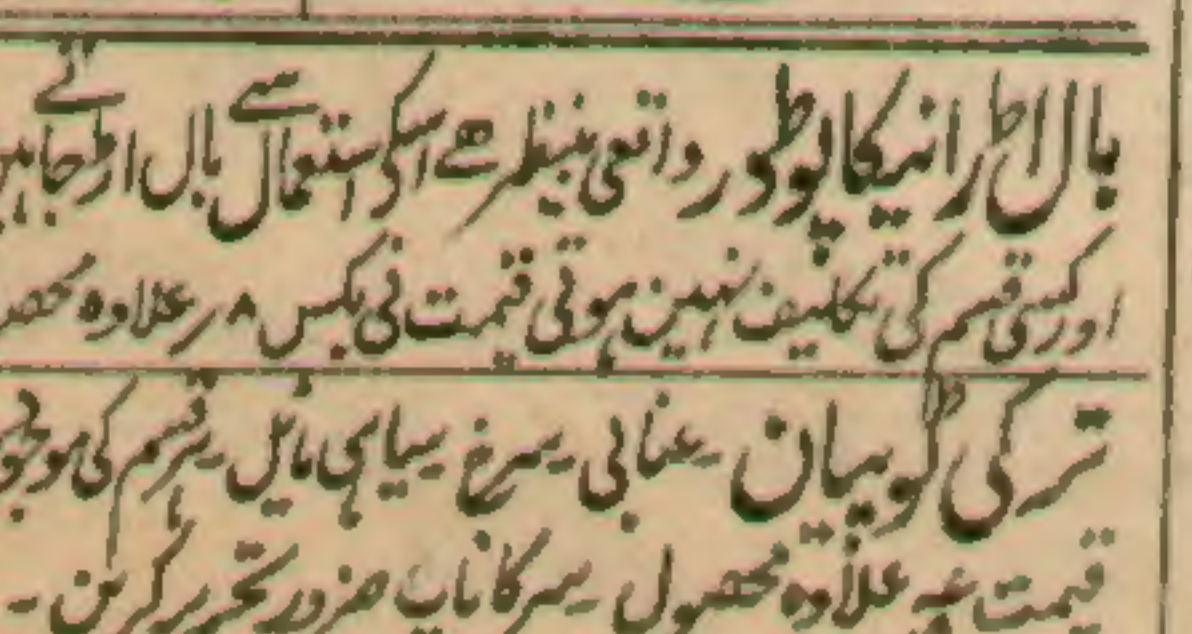 بال اڑانیکا پوڈور واقعی بینظیر ہے اسکے استعمال سے بال اڑ جائینگے
اور کسی قسم کی تکلیف نہین ہوتی قیمت فی بکس ۸ر علاوہ محصو
ترکی ٹوپیان ۔ عنابی ۔ سرخ ۔ سیاہی مایل ۔ ہر قسم کی موجود
قیمت علاوہ محصول ۔ سر کا ناپ ضرور تحریر کرین ۔